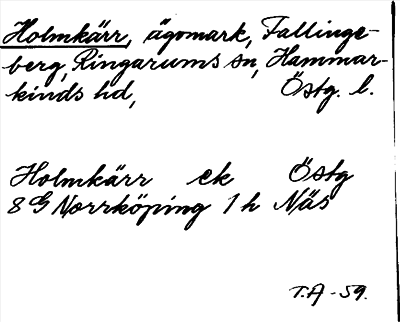 Holmkärr, ägomark, Fallinge-
berg, Ringarums sn, Hammar-
kinds hd, Östg. l.
Holmkärr ek Östg
8 G Norrköping 1 h Näs
T.A -59.